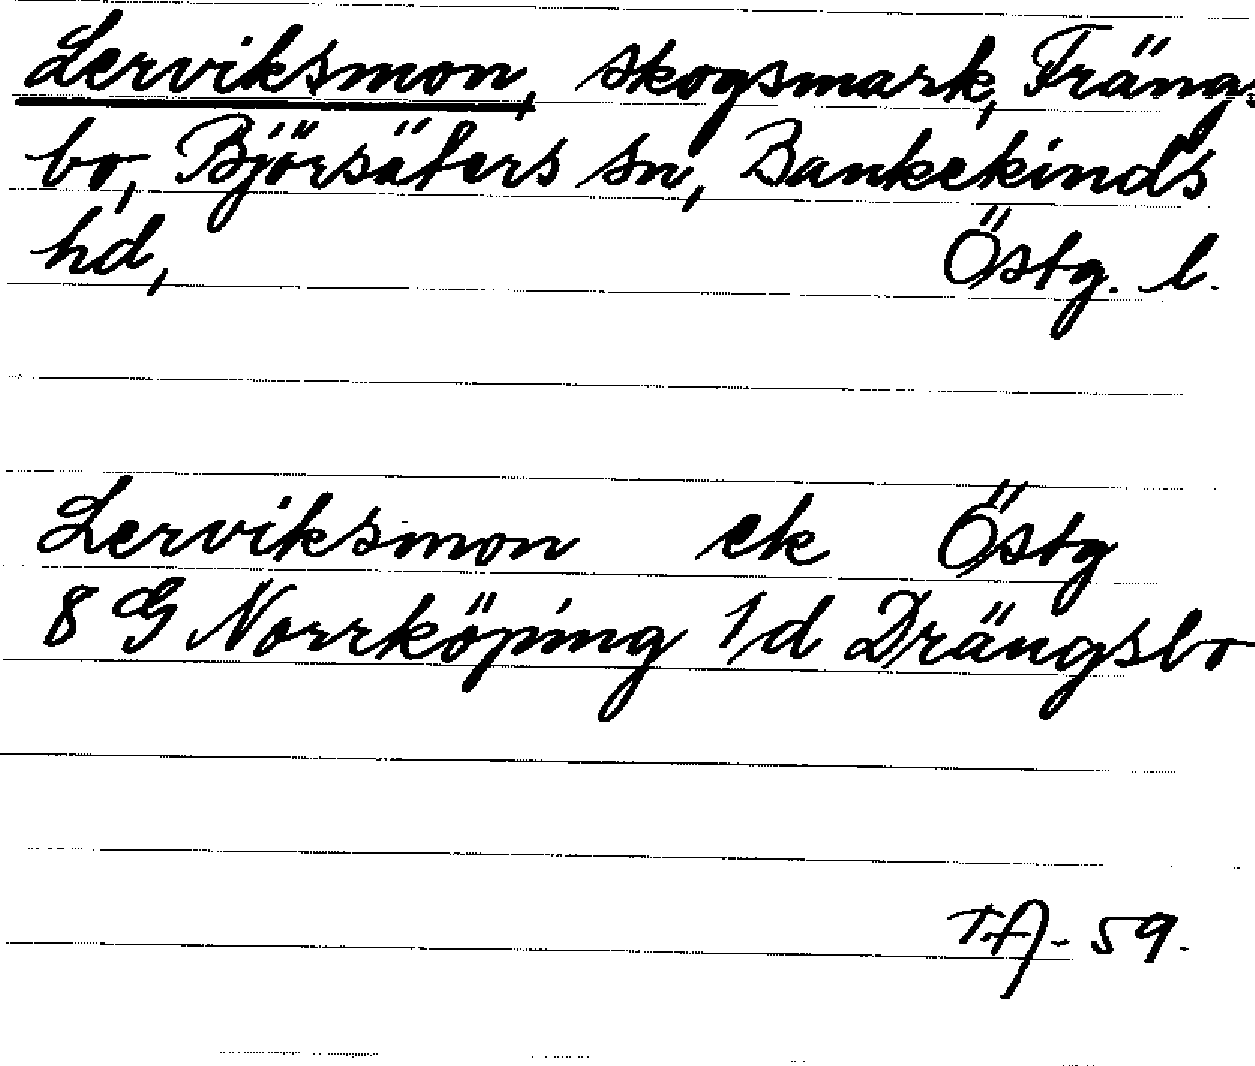 Lerviksmon, skogsmark, Frängs
bo, Björsäters sn, Bankekinds
hd, Östg. l.
Lerviksmon ek Östg
8 G Norrköping 1/d Drängsbo
TA-59.